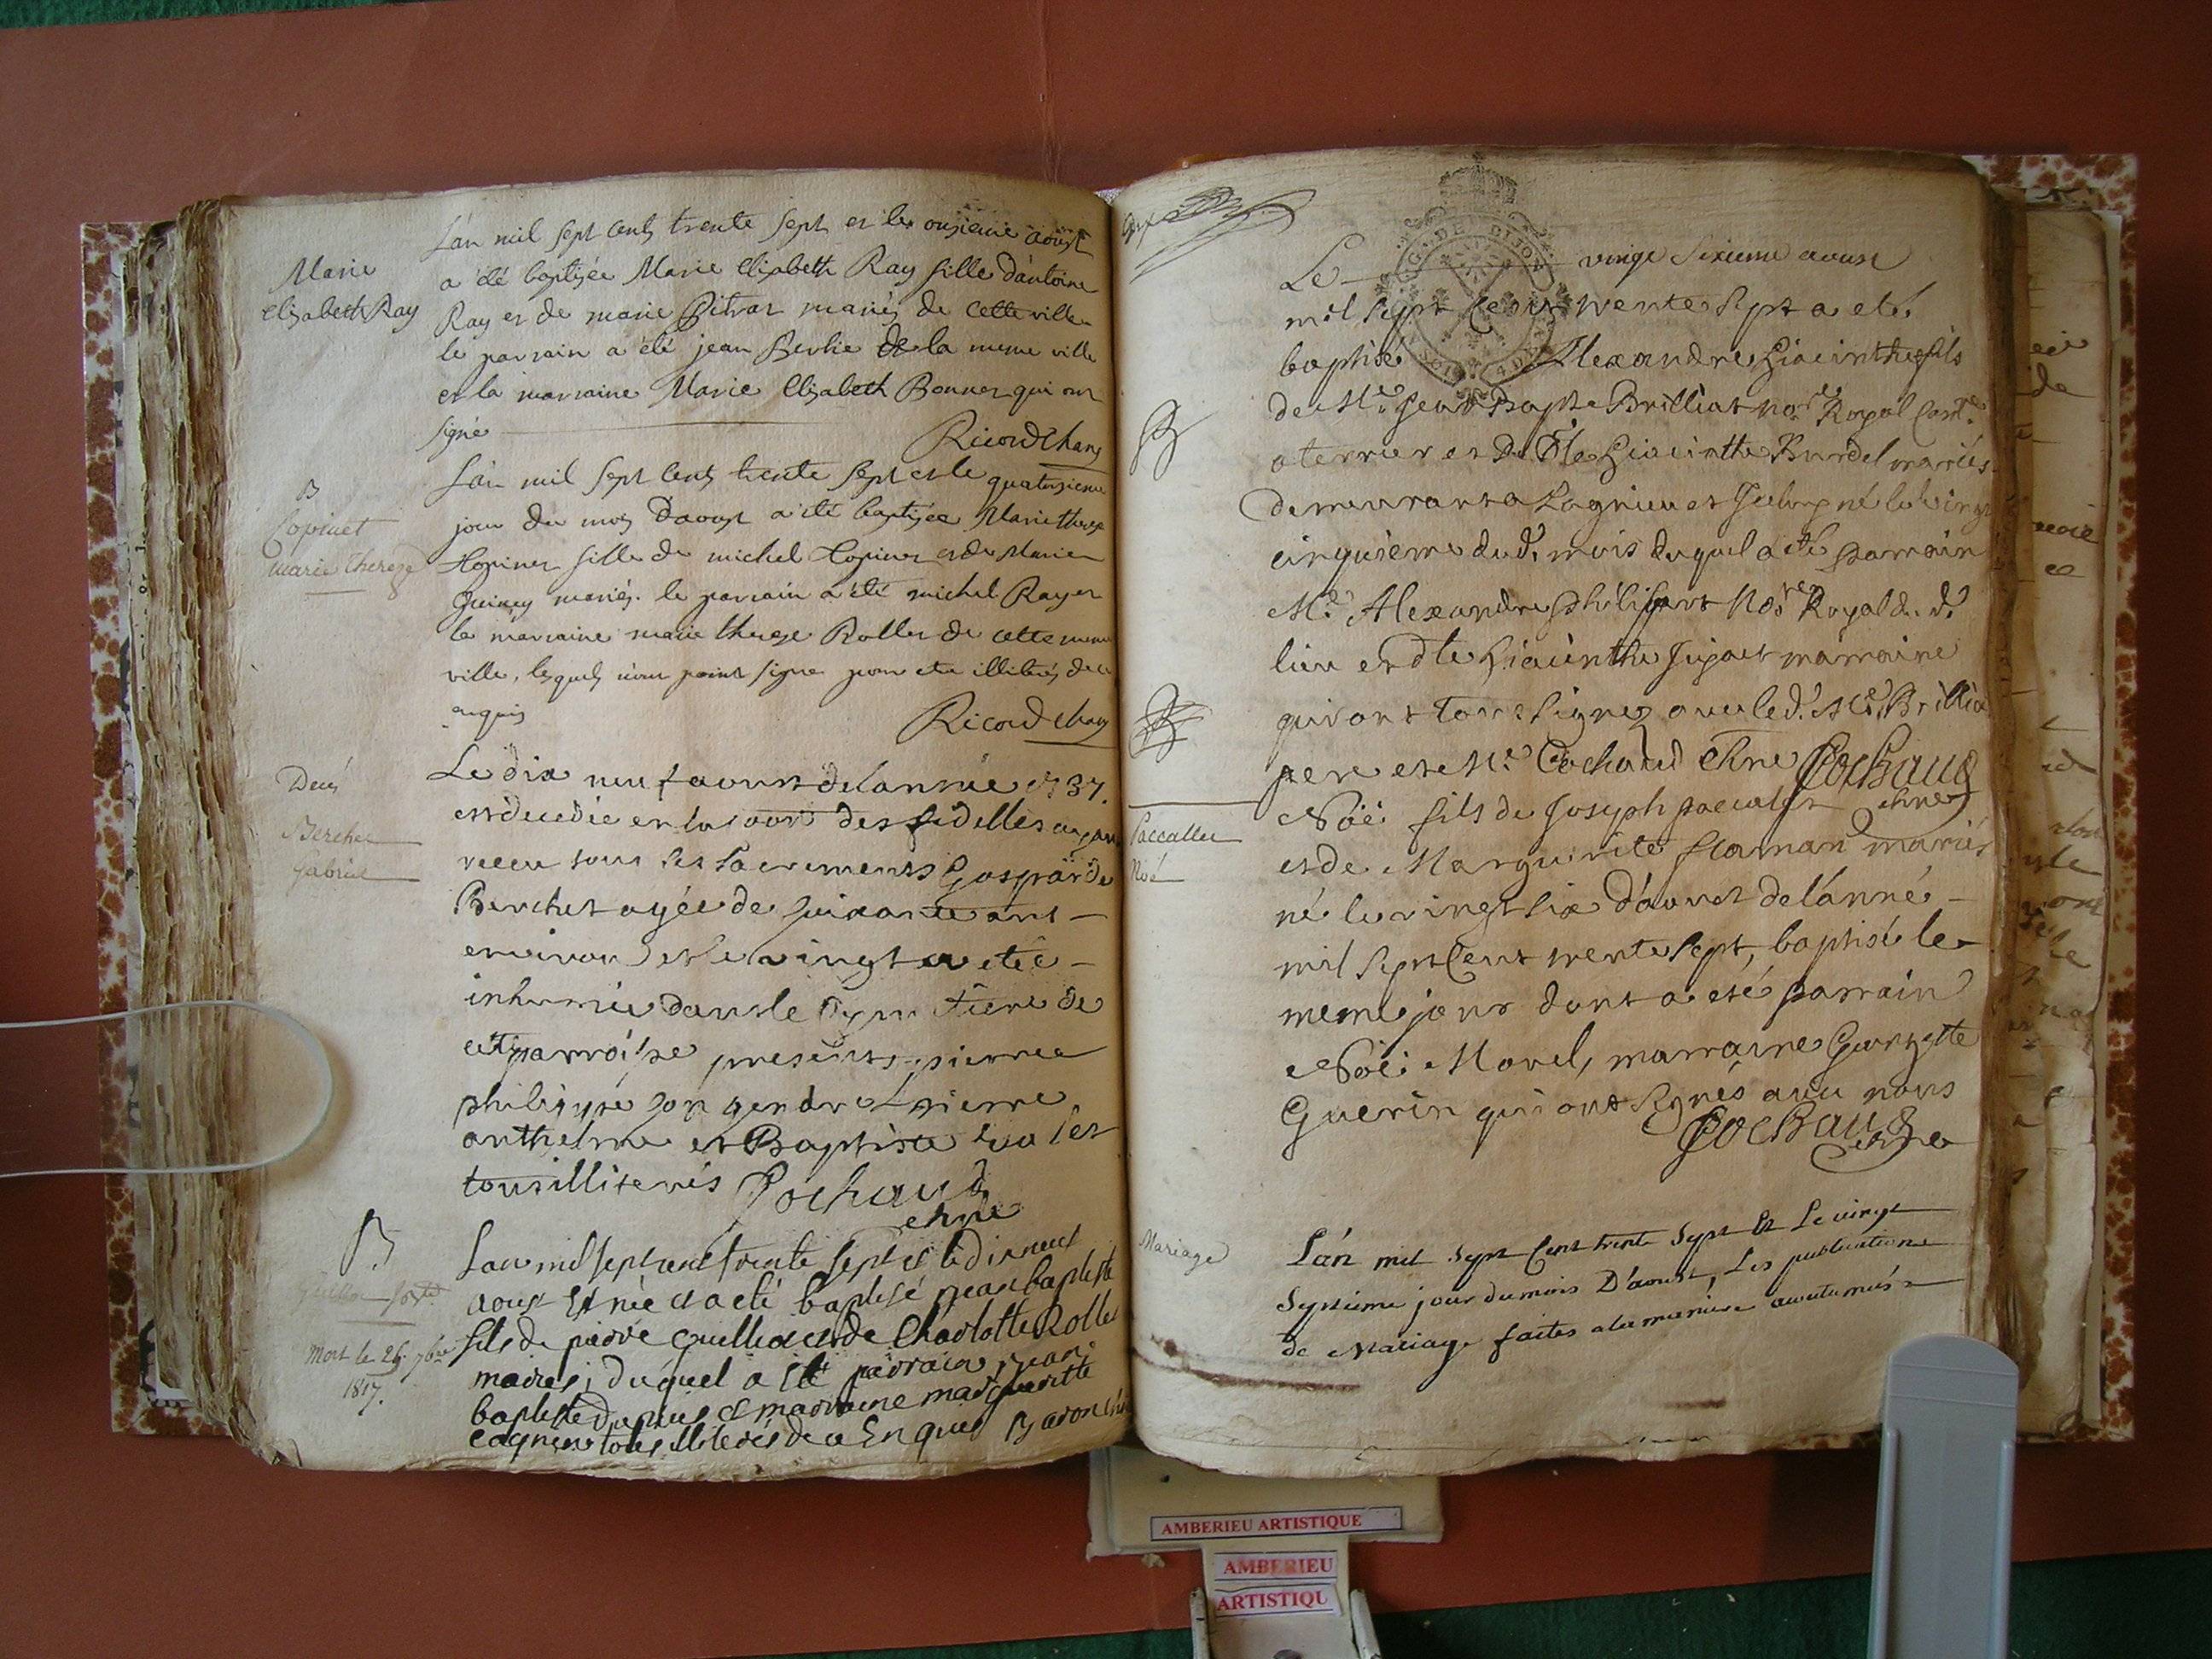 Marie
elisabeth Ray
L'an mil sept cents trente sept et le onzieme aoust
a été baptisée Marie Elisabeth Ray fille d'antoine
Ray et de marie Pitrat mariés de cette ville
le parrain a été jean Berlie de la meme ville
et la marraine Marie Elisabeth Bonnet qui ont
signé
Ricord chany
B
Copinet
marie therese
L'an mil sept cents trente sept et le quatorzieme
jour du mois d'aoust a été baptisée Marie therese
Copinet fille de michel Copinet et de Marie
mariés. le parrain a été michel Ray et
la marraine marie therese Rollet de cette meme
ville, lesquels n'ont point signé pour etre illiterés de ce
enquis
Ricord chany
Decés
Berchet
Le dix neuf aoust de l'année 1737.
est decedée en la des fidelles ayant
receu tous les sacrements Gasparde
Berchet agée de soixante ans
environ et le vingt a eté
inhumée dans le Cymetiere de
cette parroisse presents pierre
philippe son gendre pierre
anthelme et Baptiste
tous illiterés Cochaud
chne
B
Mort le 26. 7bre
1817.
L'an mil sept cent trente sept et le dixneuf
aoust est née et a eté baptisé jean baptiste
fils de pierre Guillot et de Charlotte Rollet
mariés, duquel a eté parrain jean
baptiste Dupuis et marraine marguerite
tous illiterés de ce Enquis
GEN. DE DIJON
Le vingt sixieme aoust
mil sept cent trente sept a eté
baptisé Alexandre hiacinthe fils
de Me. Jean Bapte Brillat nore Royal Comre
a terrier et de Dlle hiacinthe Burdel mariés
demeurant a Lagnieu et né le vingt
cinquieme dud. mois duquel a eté parrain
Me. Alexandre philippart nore Royal du d.
lieu et dlle hiacinthe marraine
qui ont tous signez avec led. Me. Brillat
pere et Me. Cochaud chne Cochaud
chne
B
Paccallet
Noé
Noé fils de Joseph paccalet
et de Marguerite flaman mariés
né le vingt six d'aoust de l'année
mil sept cent trente sept, baptisé le
meme jour dont a eté parrain
Noé Morel, marraine
Guerin qui ont signés avec nous
Cochaud
chne
Mariage
L'an mil sept cent trente sept Et Le vingt
Septieme jour du mois D'aoust, Les publications
de Mariage faites a la maniere accutumés
AMBERIEU ARTISTIQUE
AMBERIEU
ARTISTIQU